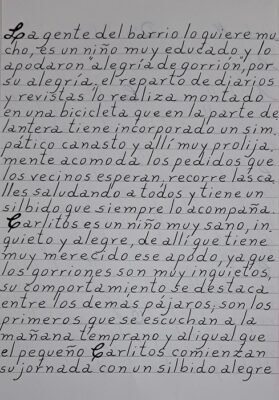 La gente del barrio lo quiere mu_
cho, es un niño muy educado y lo
apodaron "alegría de gorrión", por
su alegría; el reparto de diarios
y revistas lo realiza montado
en una bicicleta que en la parte de
lantera tiene incorporado un sim_
pático canasto y allí muy prolija_
mente acomoda los pedidos que
los vecinos esperan, recorre las ca_
lles saludando a todos y tiene un
silbido que siempre lo acompaña.
Carlitos es un niño muy sano, in_
quieto y alegre, de allí que tiene
muy merecido ese apodo, ya que
los gorriones son muy inquietos,
su comportamiento se destaca
entre los demás pájaros; son los
primeros que se escuchan a la
mañana temprano y al igual que
el pequeño Carlitos comienzan
su jornada con un silbido alegre